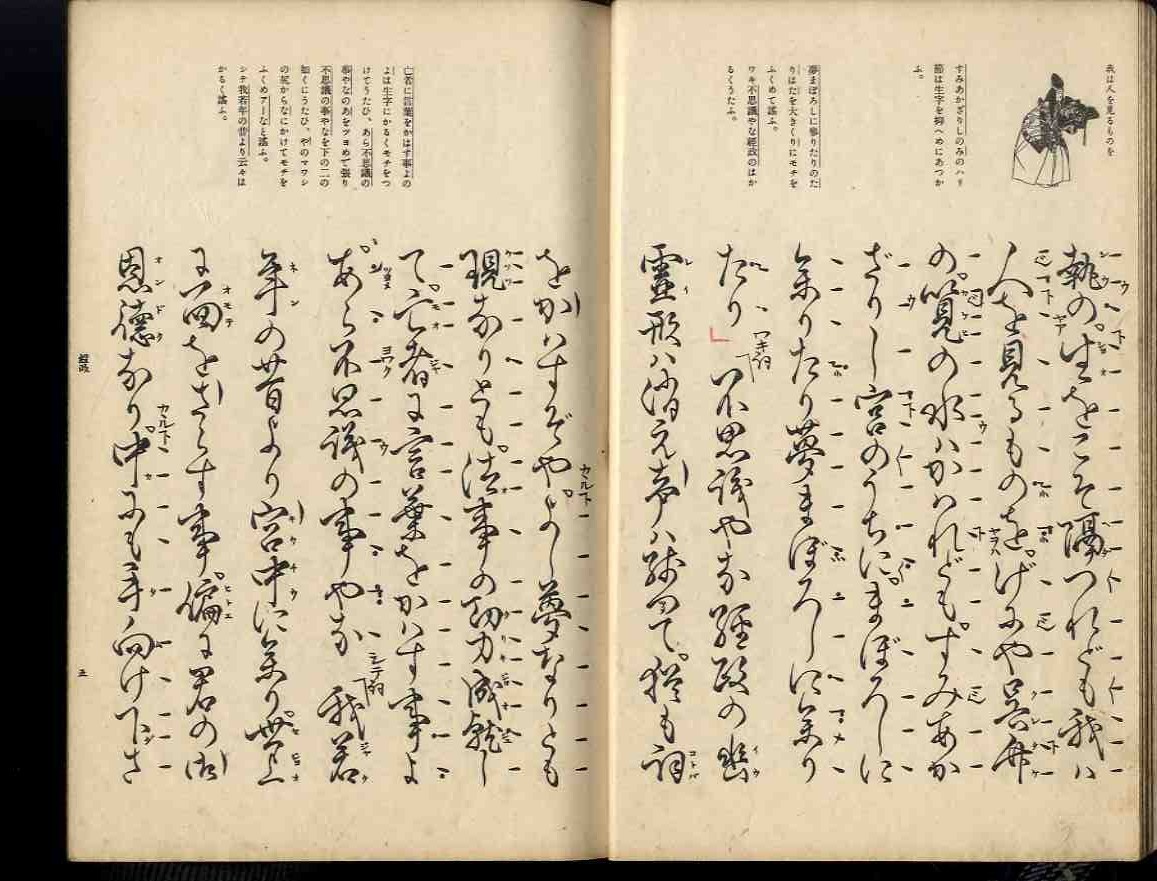 我は人を見るものを
すみあかざりしのみのハリ
節は生字を抑へめにあつか
ふ。
夢まぼろしに參りたりのた
りはたを大きくりにモチを
ふくめて謠ふ。
ワキ不思議やな經政のはか
るくうたふ。
執の。生をこそ隔つれども我ハ
人を見るものを。げにや呉竹
の。筧の水ハかハれども。すみあか
ざりし宮のうちに。まぼろしに
參りたり夢まぼろしに參り
たり
ワキ詞
不思議やな經政の幽
靈形ハ消え聲ハ殘つて。猶も詞
コトバ
亡者に言葉をかはす事よの
よは生字にかるくモチをつ
けてうたひ、あら不思議の
事やなのあをツヨめて張り
不思議の事やなを下の二の
如くにうたひ、やのマワシ
の尻からなにかけてモチを
ふくめアーなと謠ふ。
シテ我若年の昔より云々は
かるく謠ふ。
をかハすぞや。よし夢なりとも
カルク下
現なりとも。法事の功力成就し
て。亡者に言葉をかハす事よ
あら不思議の事やな
シテ詞
我若
年の昔より宮中に參り。世上
に面をさらす事。偏に君の御
オモテ
ヒトエ
恩德なり。中にも手向け下さ
オンドク
經政
五